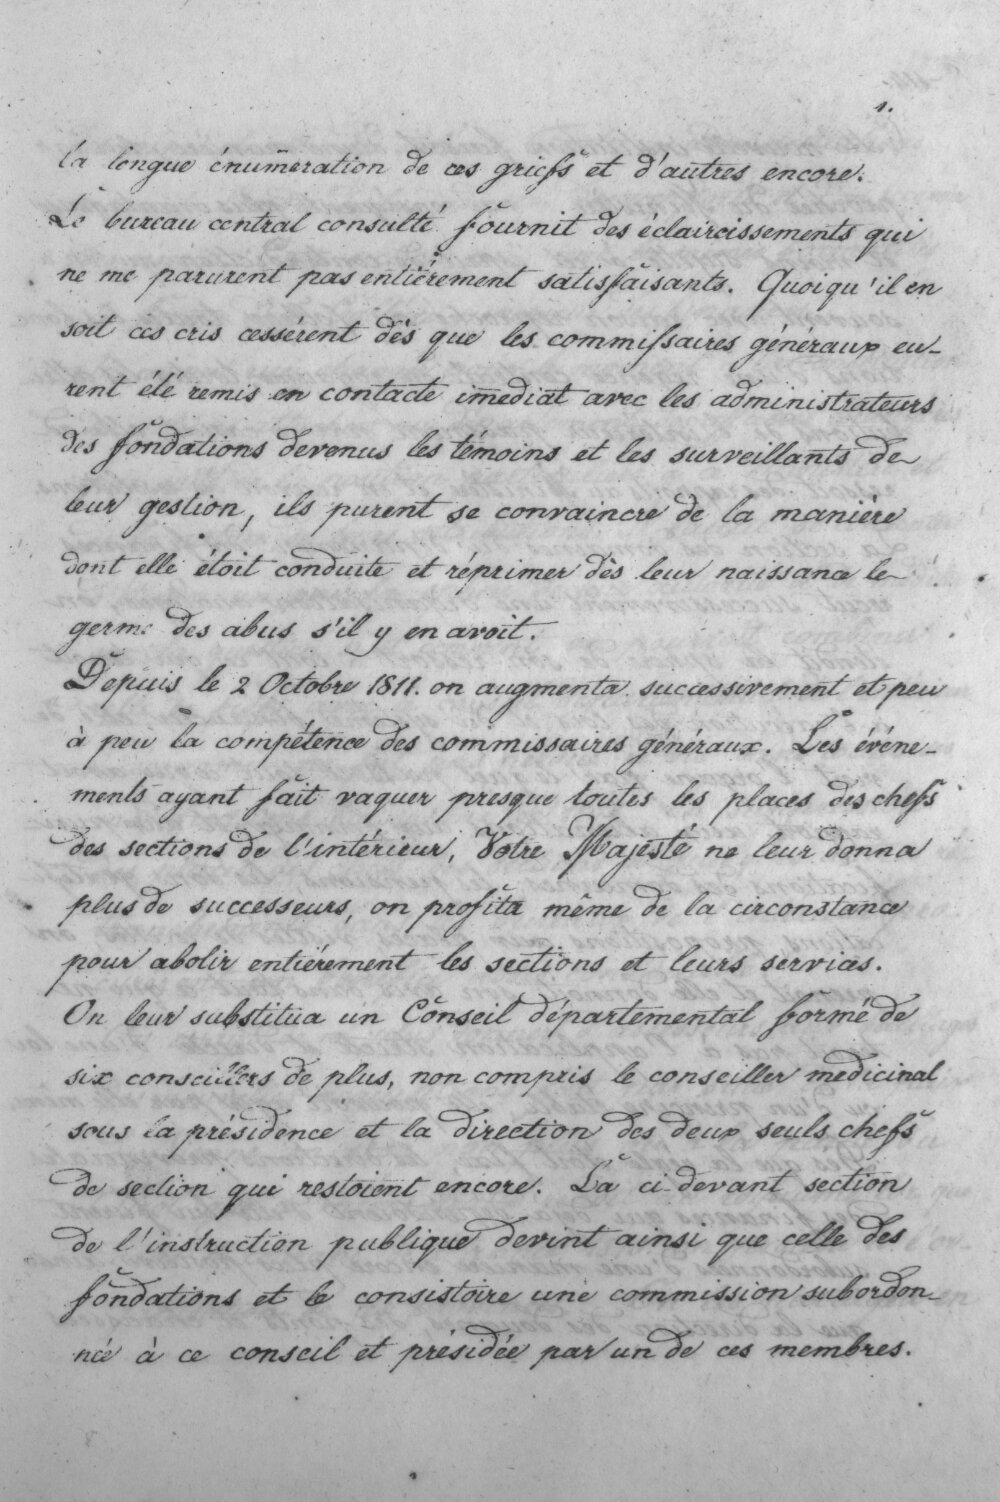 1.
la longue énumeration de ces griefs et d'autres encore.
Le bureau central consulté fournit des éclaircissements qui
ne me parurent pas entiérement satisfaisants. Quoiqu'il en
soit ces cris cessérent dès que les commissaires généraux eu-
rent été remis en contacte imediat avec les administrateurs
des fondations devenus les témoins et les surveillants de
leur gestion, ils purent se convaincre de la maniére
dont elle étoit conduite et réprimer dès leur naissance le
germe des abus s'il y en avoit.
Depuis le 2 Octobre 1811. on augmenta successivement et peu
à peu la compétence des commissaires généraux. Les événe-
ments ayant fait vaquer presque toutes les places des chefs
des sections de l'intérieur, Votre Majesté ne leur donna
plus de successeurs, on profita même de la circonstance
pour abolir entiérement les sections et leurs services.
On leur substitua un Conseil départemental formé de
six conseillers de plus, non compris le conseiller medicinal
sous la présidence et la direction des deux seuls chefs
de section qui restoient encore. La ci-devant section
de l'instruction publique devint ainsi que celle des
fondations et le consistoire une commission subordon-
née à ce conseil et présidée par un de ces membres.